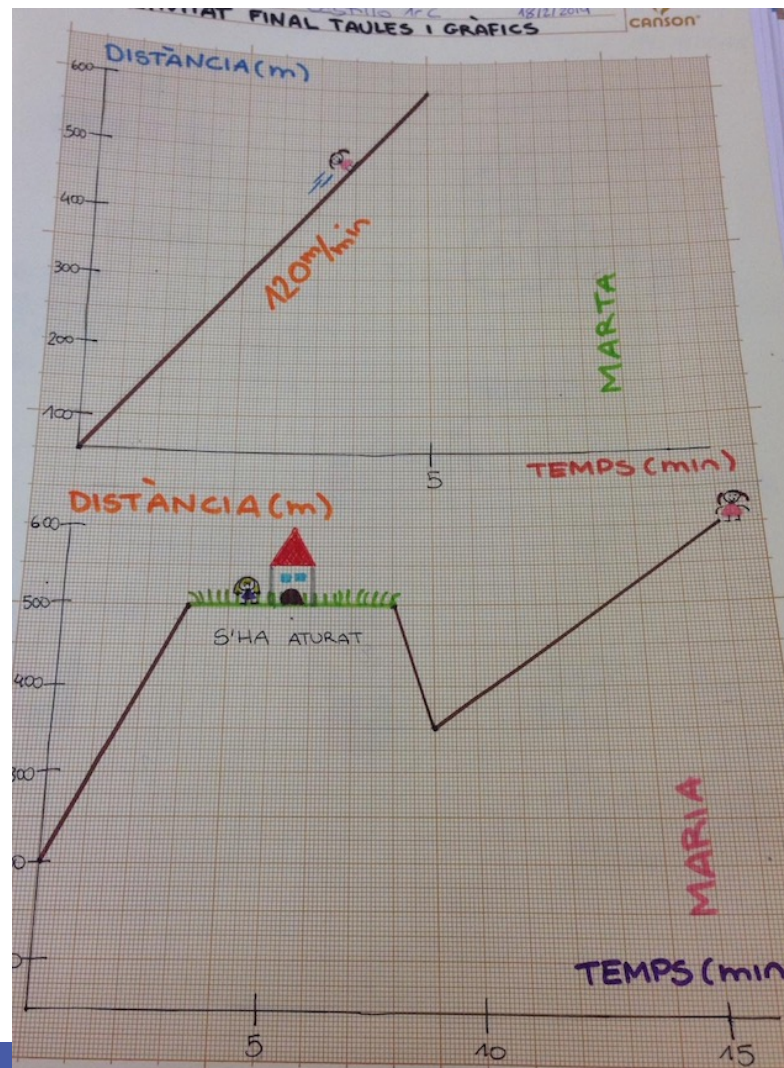 FINAL TAULES I GRÀFICS
18/2/2014
CANSON
DISTÀNCIA (m)
600
500
400
300
200
100
120 m/min
MARTA
5
TEMPS (min)
DISTÀNCIA (m)
600
500
S'HA ATURAT
400
MARIA
TEMPS (min
5
10
15